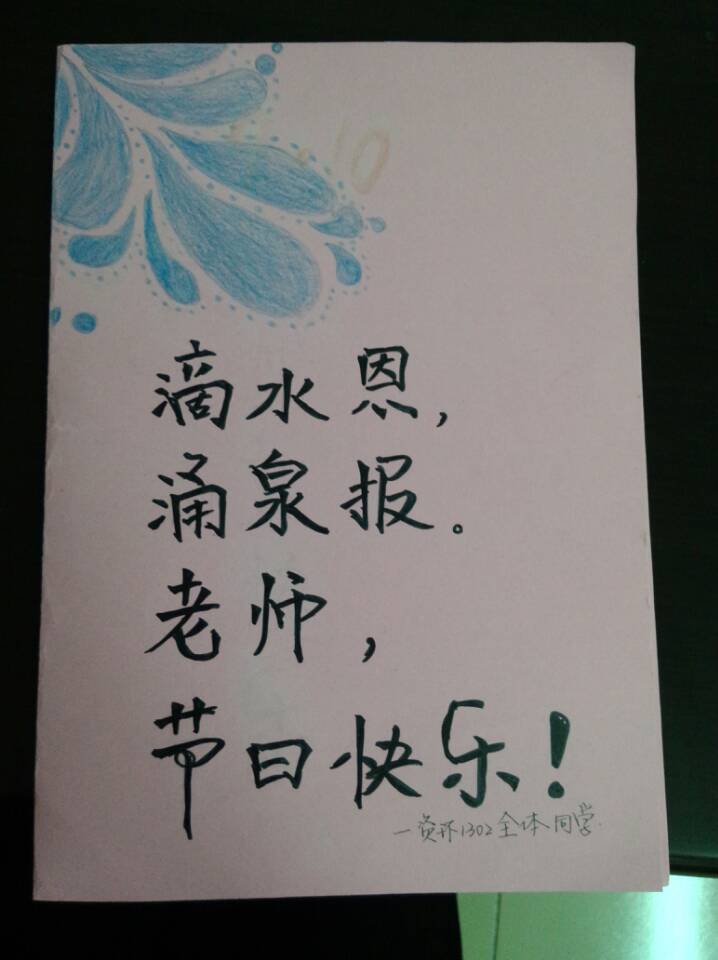 滴水恩，
涌泉报。
老师，
节日快乐！
一资环1302全体同学